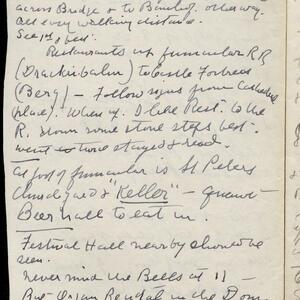 across Bridge & to Bahnhof, other way.
All easy walking distance.
See 1st & best:
Restaurants up funicular RR
(Drachtseilbahn) to Castle Fortress
(Berg) — Follow signs from Cathedral
place). When up I like Rest. to the
R. down some stone steps best.
went twice stayed & read.
At foot of funicular is St Peters
Churchyard & "Keller" — quaint
Beer hall to eat in.
Festival Hall nearby should be
seen.
Never mind the Bells at 11 —
But Organ Recital in the Dom